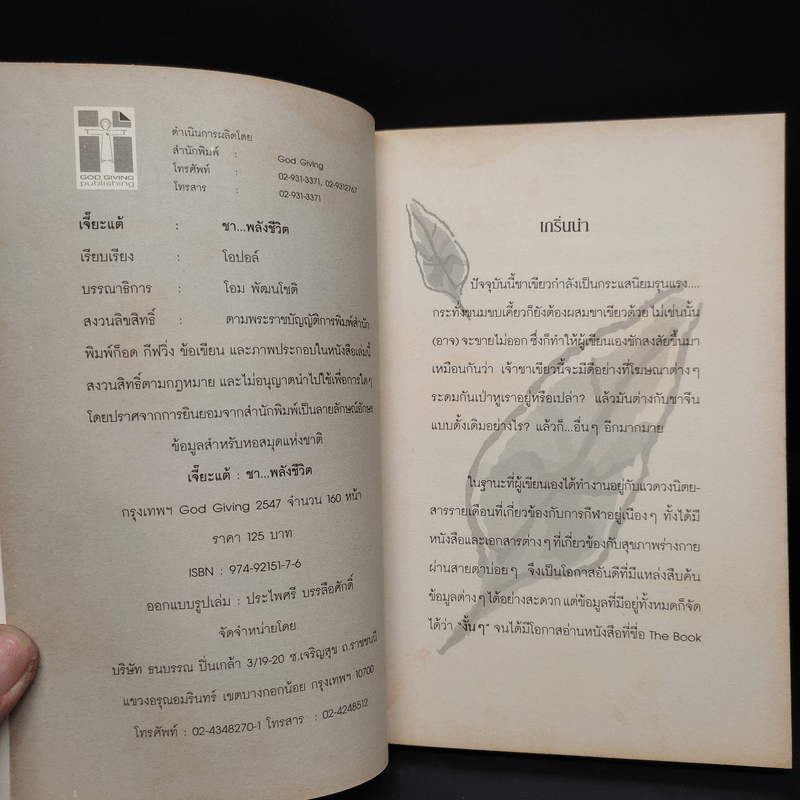 GOD GIVING
publishing
ดำเนินการผลิตโดย
สำนักพิมพ์ : God Giving
โทรศัพท์ : 02-931-3371, 02-9312767
โทรสาร : 02-931-3371
เจี๊ยะแต้ : ชา...พลังชีวิต
เรียบเรียง : โอปอล์
บรรณาธิการ : โอม พัฒนโชติ
สงวนลิขสิทธิ์ : ตามพระราชบัญญัติการพิมพ์สำนัก
พิมพ์ก็อด กีฟวิ่ง ข้อเขียน และภาพประกอบในหนังสือเล่มนี้
สงวนสิทธิ์ตามกฎหมาย และไม่อนุญาตนำไปใช้เพื่อการใดๆ
โดยปราศจากการยินยอมจากสำนักพิมพ์เป็นลายลักษณ์อักษร
ข้อมูลสำหรับหอสมุดแห่งชาติ
เจี๊ยะแต้ : ชา...พลังชีวิต
กรุงเทพฯ God Giving 2547 จำนวน 160 หน้า
ราคา 125 บาท
ISBN : 974-92151-7-6
ออกแบบรูปเล่ม : ประไพศรี บรรลือศักดิ์
จัดจำหน่ายโดย
บริษัท ธนบรรณ ปิ่นเกล้า 3/19-20 ซ.เจริญสุข ถ.ราชชนนี
แขวงอรุณอมรินทร์ เขตบางกอกน้อย กรุงเทพฯ 10700
โทรศัพท์ : 02-4348270-1 โทรสาร : 02-4248512
เกริ่นนำ
ปัจจุบันนี้ชาเขียวกำลังเป็นกระแสนิยมรุนแรง....
กระทั่งขนมขบเคี้ยวก็ยังต้องผสมชาเขียวด้วย ไม่เช่นนั้น
(อาจ) จะขายไม่ออก ซึ่งก็ทำให้ผู้เขียนเองชักสงสัยขึ้นมา
เหมือนกันว่า เจ้าชาเขียวนี้จะมีดีอย่างที่โฆษณาต่างๆ
ระดมกันเป่าหูเราอยู่หรือเปล่า? แล้วมันต่างกับชาจีน
แบบดั้งเดิมอย่างไร? แล้วก็...อื่นๆ อีกมากมาย
ในฐานะที่ผู้เขียนเองได้ทำงานอยู่กับแวดวงนิตย-
สารรายเดือนที่เกี่ยวข้องกับการกีฬาอยู่เนืองๆ ทั้งได้มี
หนังสือและเอกสารต่างๆ ที่เกี่ยวข้องกับสุขภาพร่างกาย
ผ่านสายตาบ่อยๆ จึงเป็นโอกาสอันดีที่มีแหล่งสืบค้น
ข้อมูลต่างๆ ได้อย่างสะดวก แต่ข้อมูลที่มีอยู่ทั้งหมดก็จัด
ได้ว่า "งั้นๆ" จนได้มีโอกาสอ่านหนังสือที่ชื่อ The Book